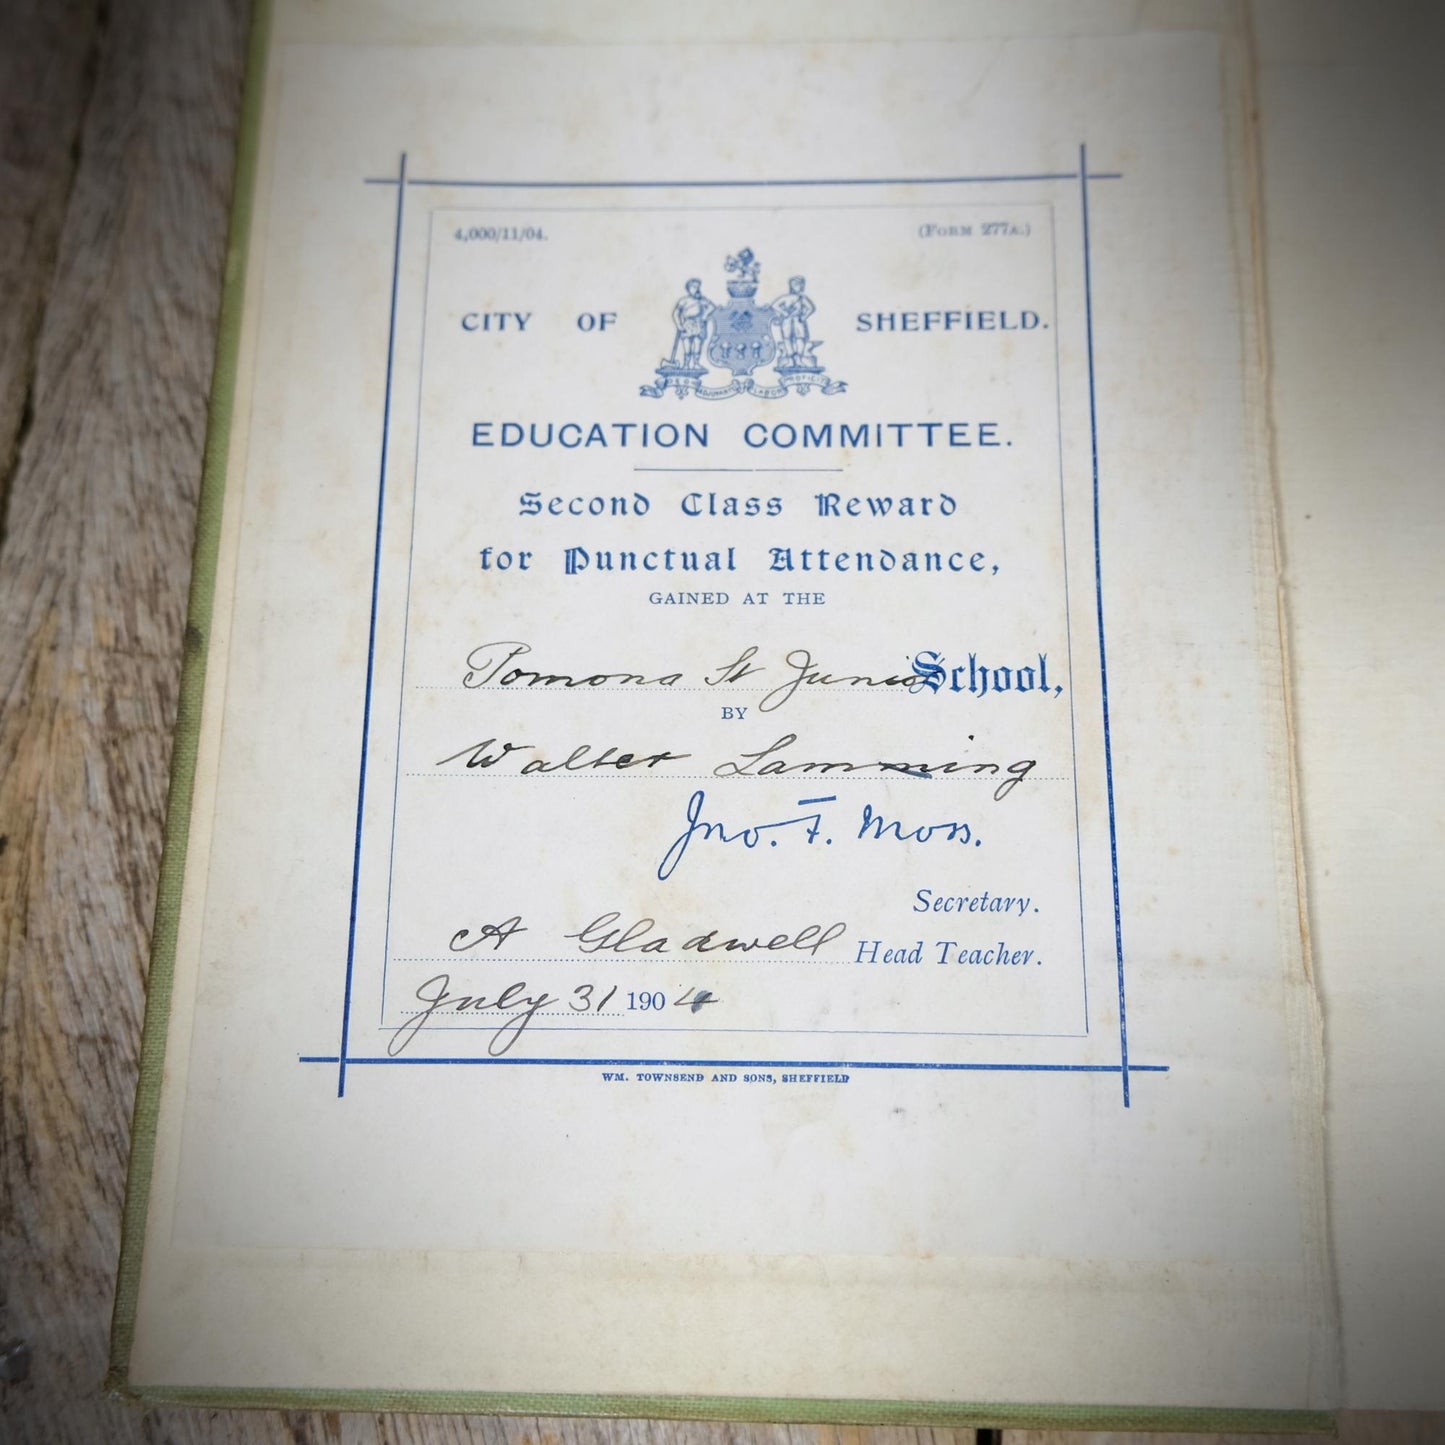 4,000/11/04. (Form 277A.)
CITY OF SHEFFIELD.
DEO ADJUVANTE LABOR PROFICIT
EDUCATION COMMITTEE.
Second Class Reward
for Punctual Attendance,
GAINED AT THE
Pomona St Junior School,
BY
Walter Lamming
Jno. F. Moss.
Secretary.
A Gladwell Head Teacher.
July 31 1904
WM. TOWNSEND AND SONS, SHEFFIELD